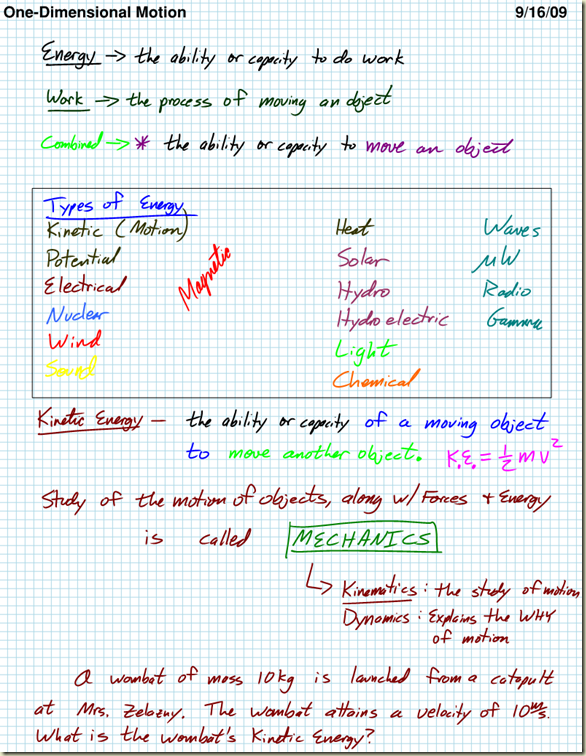 One-Dimensional Motion 9/16/09
Energy -> the ability or capacity to do work
Work -> the process of moving an object
Combined -> * the ability or capacity to move an object
Types of Energy
Kinetic (Motion) Heat Waves
Potential Magnetic Solar μW
Electrical Hydro Radio
Nuclear Hydroelectric Gamma
Wind Light
Sound Chemical
Kinetic Energy - the ability or capacity of a moving object
to move another object. K.E. = 1/2 m v²
Study of the motion of objects, along w/ Forces + Energy
is called MECHANICS
↳ Kinematics: the study of motion
Dynamics: Explains the WHY
of motion
A wombat of mass 10kg is launched from a catapult
at Mrs. Zelazny. The wombat attains a velocity of 10 m/s.
What is the wombat's Kinetic Energy?